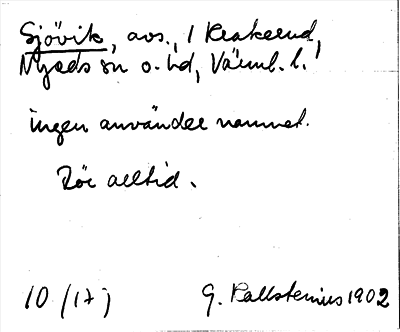 Sjövik, avs., / Krakerud,
Nyeds sn o. hd, Värml. l.
ingen använder namnet.
Rör alltid.
10 (17)
G. Kallstenius 1902